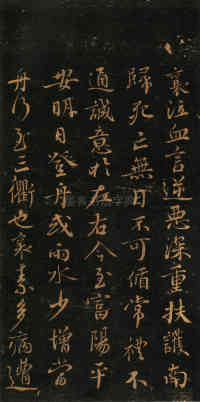 襄泣血言逆恶深重扶護南
歸死亡無日不可循常禮不
通誠意於左右今至富陽平
安明日登舟或雨水少增當
舟行至三衢也襄素多病遭